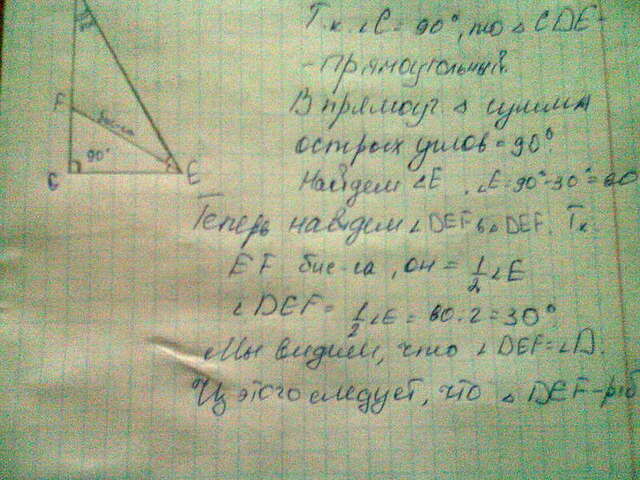 Т.к. ∠C = 90°, то △ CDE -
- прямоугольный.
В прямоуг. △ сумма
острых углов = 90°.
Найдем ∠E. ∠E = 90° - 30° = 60
Теперь найдем ∠DEF в △ DEF. Т.к.
EF бис-са, он = 1/2 ∠E
∠DEF = 1/2 ∠E = 60 : 2 = 30°
Мы видим, что ∠DEF = ∠D.
Из этого следует, что △ DEF - р/б
F
бис-са
90°
C
E